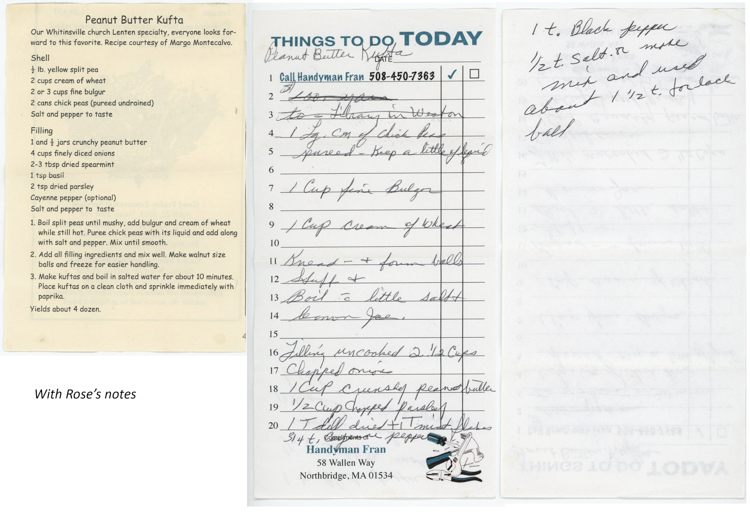 Peanut Butter Kufta
Our Whitinsville church Lenten specialty, everyone looks for-
ward to this favorite. Recipe courtesy of Margo Montecalvo.
Shell
½ lb. yellow split pea
2 cups cream of wheat
2 or 3 cups fine bulgur
2 cans chick peas (pureed undrained)
Salt and pepper to taste
Filling
1 and ½ jars crunchy peanut butter
4 cups finely diced onions
2-3 tbsp dried spearmint
1 tsp basil
2 tsp dried parsley
Cayenne pepper (optional)
Salt and pepper to taste
1. Boil split peas until mushy, add bulgur and cream of wheat
while still hot. Puree chick peas with its liquid and add along
with salt and pepper. Mix until smooth.
2. Add all filling ingredients and mix well. Make walnut size
balls and freeze for easier handling.
3. Make kuftas and boil in salted water for about 10 minutes.
Place kuftas on a clean cloth and sprinkle immediately with
paprika.
Yields about 4 dozen.
With Rose's notes
THINGS TO DO, TODAY
Peanut Butter Kufta
DATE
1 Call Handyman Fran 508-450-7363 ✓
2
3 to Library in Weston
4 1 Lg. Cm of chick peas
5 pureed - Keep a little of liquid
6
7 1 Cup fine Bulgor
8
9 1 Cup cream of wheat
10
11 Knead - + form balls
12 Stuff +
13 Boil - a little salt +
14 lemon Jue.
15
16 Filling uncooked 2 ½ Cups
17 Chopped onion
18 1 Cup crunchy peanut butter
19 ½ Cup Chopped parsley
20 1 T dill dried + 1 T mint flakes
¾ t. pepper
Handyman Fran
58 Wallen Way
Northbridge, MA 01534
1 t. Black pepper
½ t. Salt. or more
mix and used
about 1 ½ t. for each
ball